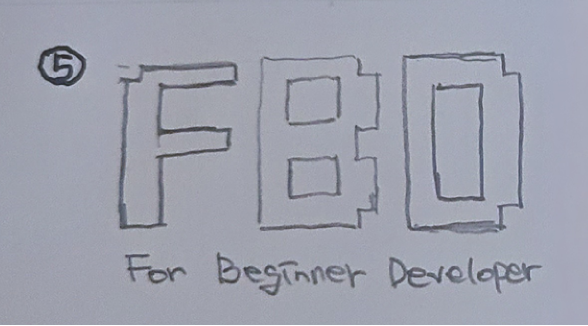 ⑤ FBD
For Beginner Developer